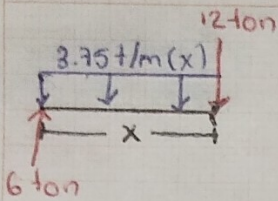 12 ton
3.75 t/m (x)
x
6 ton